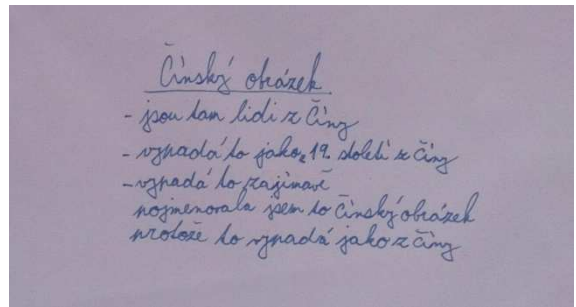 Čínský obrázek
- jsou tam lidi z Číny
- vypadá to jako z 19. století z Číny
- vypadá to zajímavě
pojmenovala jsem to Čínský obrázek
protože to vypadá jako z Číny